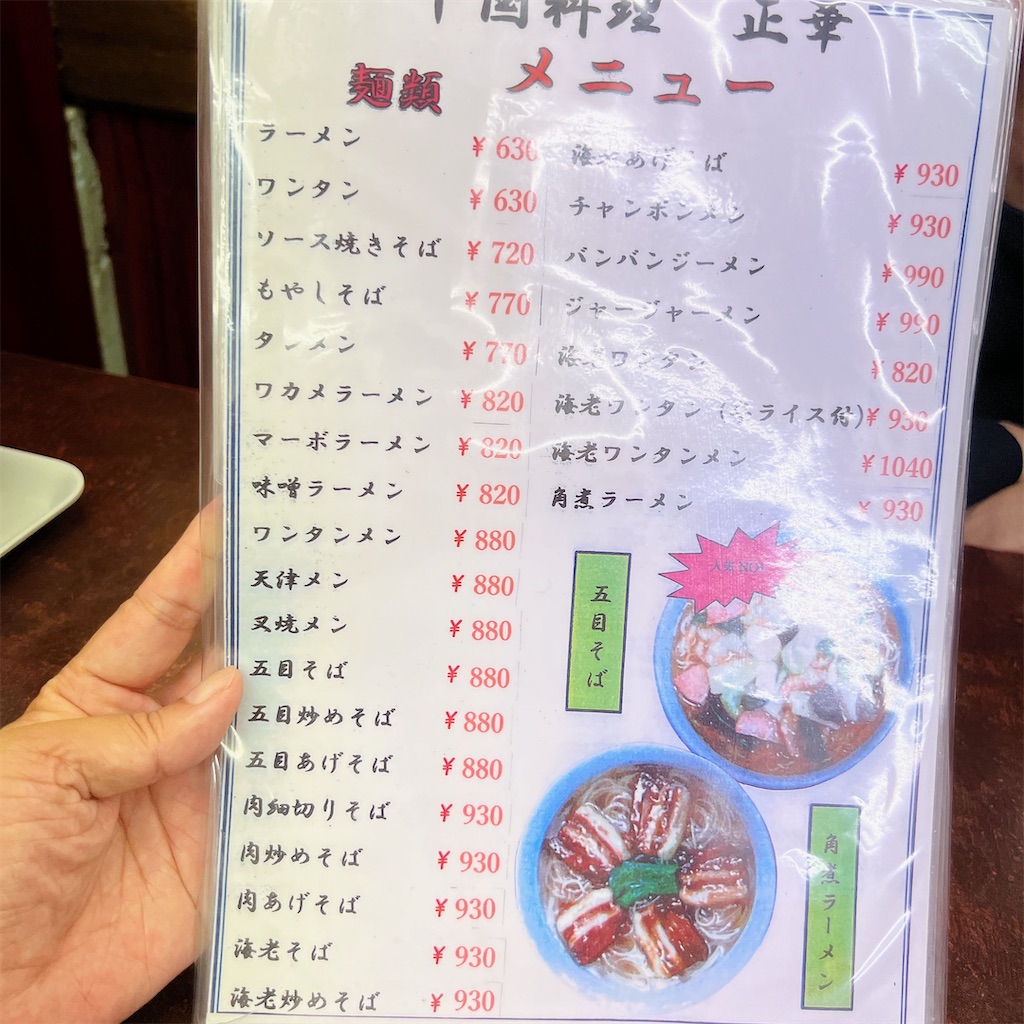 中国料理 正華
麺類 メニュー
ラーメン ¥630
ワンタン ¥630
ソース焼きそば ¥720
もやしそば ¥770
タンメン ¥770
ワカメラーメン ¥820
マーボラーメン ¥820
味噌ラーメン ¥820
ワンタンメン ¥880
天津メン ¥880
叉焼メン ¥880
五目そば ¥880
五目炒めそば ¥880
五目あげそば ¥880
肉細切りそば ¥930
肉炒めそば ¥930
肉あげそば ¥930
海老そば ¥930
海老炒めそば ¥930
海老あげそば ¥930
チャンポンメン ¥930
バンバンジーメン ¥990
ジャージャーメン ¥990
海老ワンタン ¥820
海老ワンタン (ライス付) ¥930
海老ワンタンメン ¥1040
角煮ラーメン ¥930
人気 NO1
五目そば
角煮ラーメン